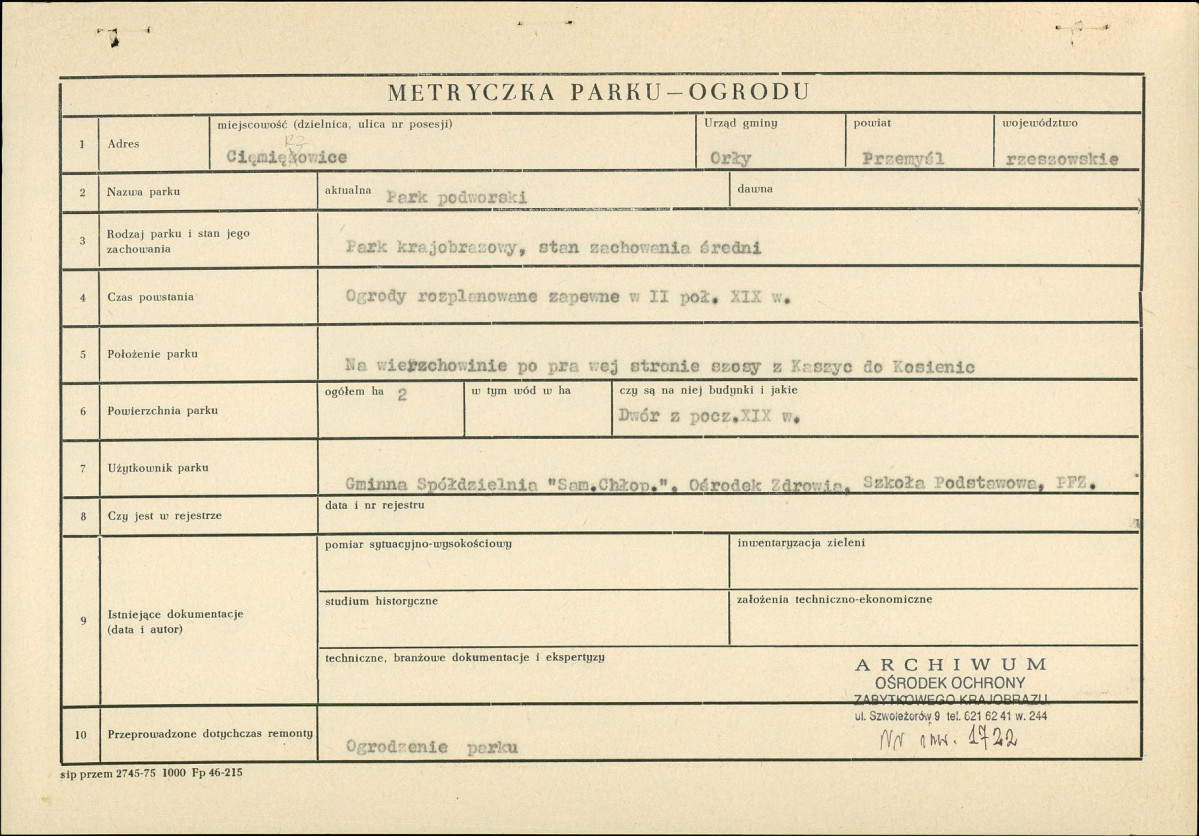 METRYCZKA PARKU – OGRODU
1 Adres
miejscowość (dzielnica, ulica nr posesji)
rz
Ciemiężowice
Urząd gminy
Orły
powiat
Przemyśl
województwo
rzeszowskie
2 Nazwa parku
aktualna Park podworski
dawna
3 Rodzaj parku i stan jego
zachowania
Park krajobrazowy, stan zachowania średni
4 Czas powstania
Ogrody rozplanowane zapewne w II poł. XIX w.
5 Położenie parku
Na wierzchowinie po pra wej stronie szosy z Kaszyc do Kosienic
6 Powierzchnia parku
ogółem ha 2
w tym wód w ha
czy są na niej budynki i jakie
Dwór z pocz.XIX w.
7 Użytkownik parku
Gminna Spółdzielnia "Sam.Chłop.", Ośrodek Zdrowia, Szkoła Podstawowa, PFZ.
8 Czy jest w rejestrze
data i nr rejestru
9 Istniejące dokumentacje
(data i autor)
pomiar sytuacyjno-wysokościowy
inwentaryzacja zieleni
studium historyczne
założenia techniczno-ekonomiczne
techniczne, branżowe dokumentacje i ekspertyzy
ARCHIWUM
OŚRODEK OCHRONY
ZABYTKOWEGO KRAJOBRAZU
ul. Szwoleżerów 9 tel. 621 62 41 w. 244
Nr inw. 1722
10 Przeprowadzone dotychczas remonty
Ogrodzenie parku
sip przem 2745-75 1000 Fp 46-215